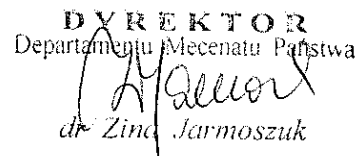 DYREKTOR
Departamentu Mecenatu Państwa
dr Zina Jarmoszuk